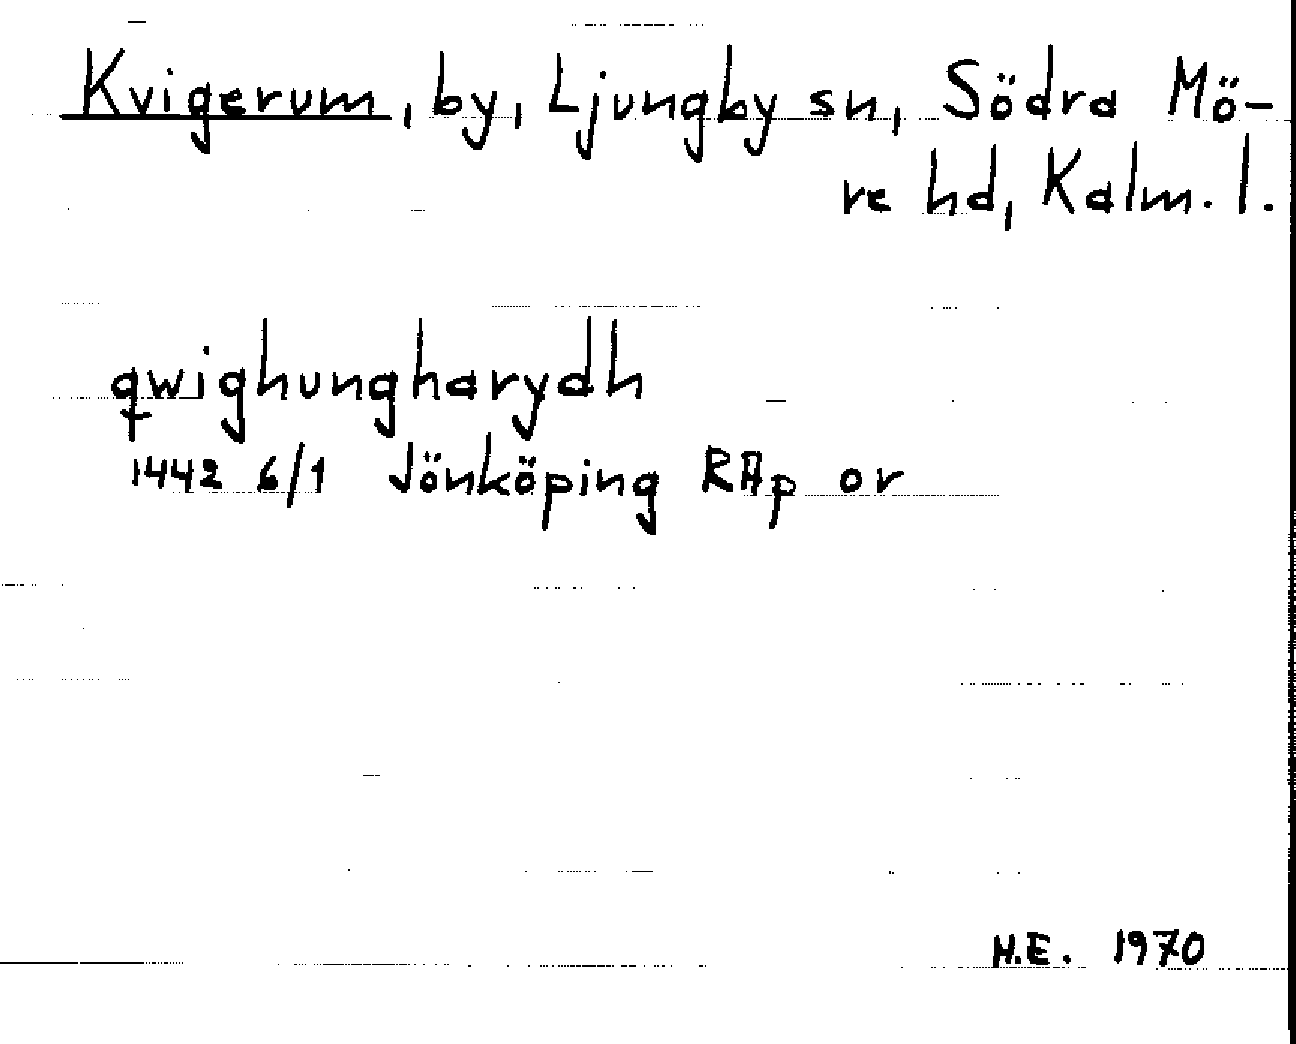 Kvigerum, by, Ljungby sn, Södra Mö-
re hd, Kalm. l.
qwighungharydh
1442 6/1 Jönköping RAp or
H.E. 1970